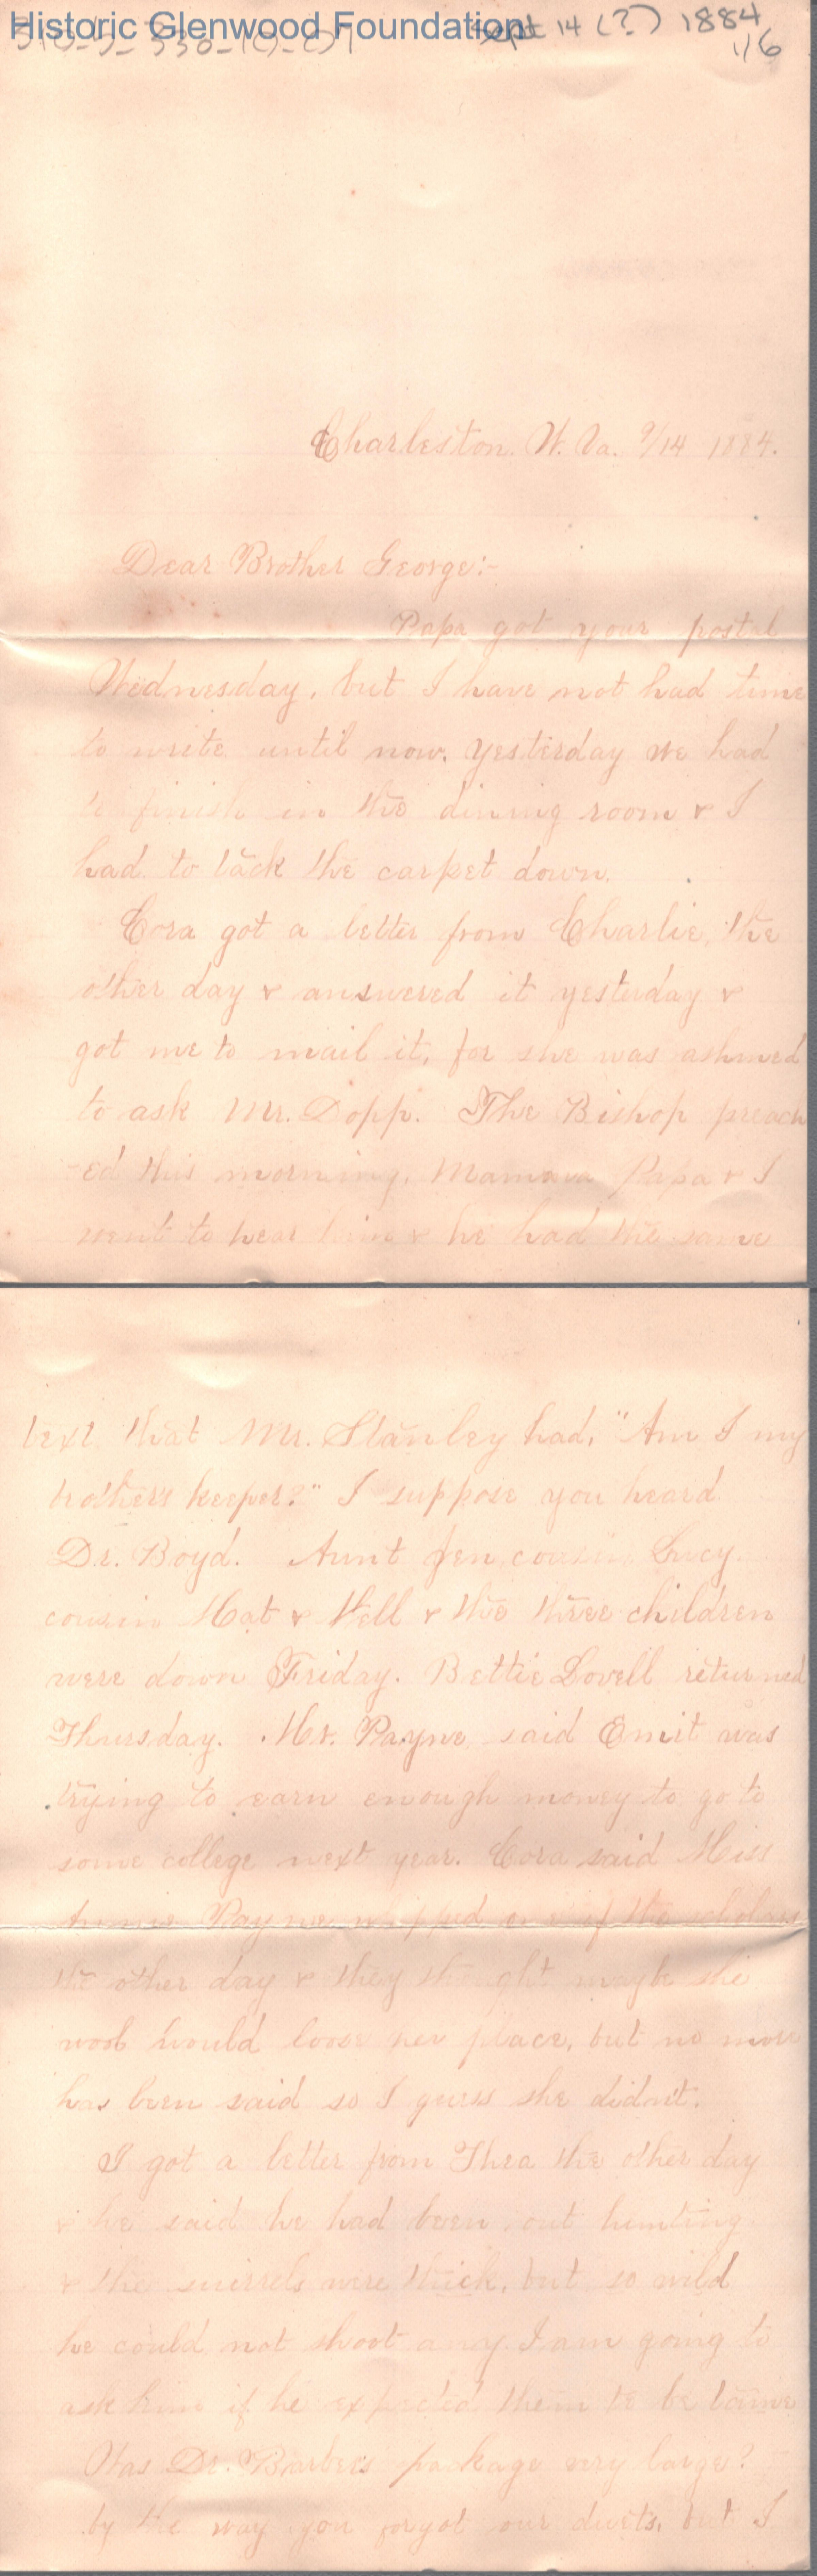 Historic Glenwood Foundation
Sept 14 (?) 1884
116
Charleston. W. Va. 9/14 1884.
Dear Brother George:-
Papa got your postal
Wednesday, but I have not had time
to write until now. Yesterday we had
to finish in the dining room & I
had to tack the carpet down.
Cora got a letter from Charlie, the
other day & answered it yesterday &
got me to mail it, for she was ashmed
to ask Mr. Dopp. The Bishop preach
-ed this morning. Mamma Papa & I
went to hear him & he had the same
text that Mr. Stanley had, "Am I my
brother's keeper?" I suppose you heard
Dr. Boyd. Aunt Jen, cousin Lucy
cousin Mat & Nell & the three children
were down Friday. Bettie Lovell returned
Thursday. Mr. Payne said Emit was
trying to earn enough money to go to
some college next year. Cora said Miss
Payne whipped one of the scholars
the other day & they thought maybe she
would loose her place, but no more
has been said so I guess she didn't.
I got a letter from Thea the other day
& he said he had been out hunting
& the suirrels were thick, but so wild
he could not shoot any. I am going to
ask him if he expected them to be tame
Was Dr. Barber's package very large?
by the way you forgot our duets, but I